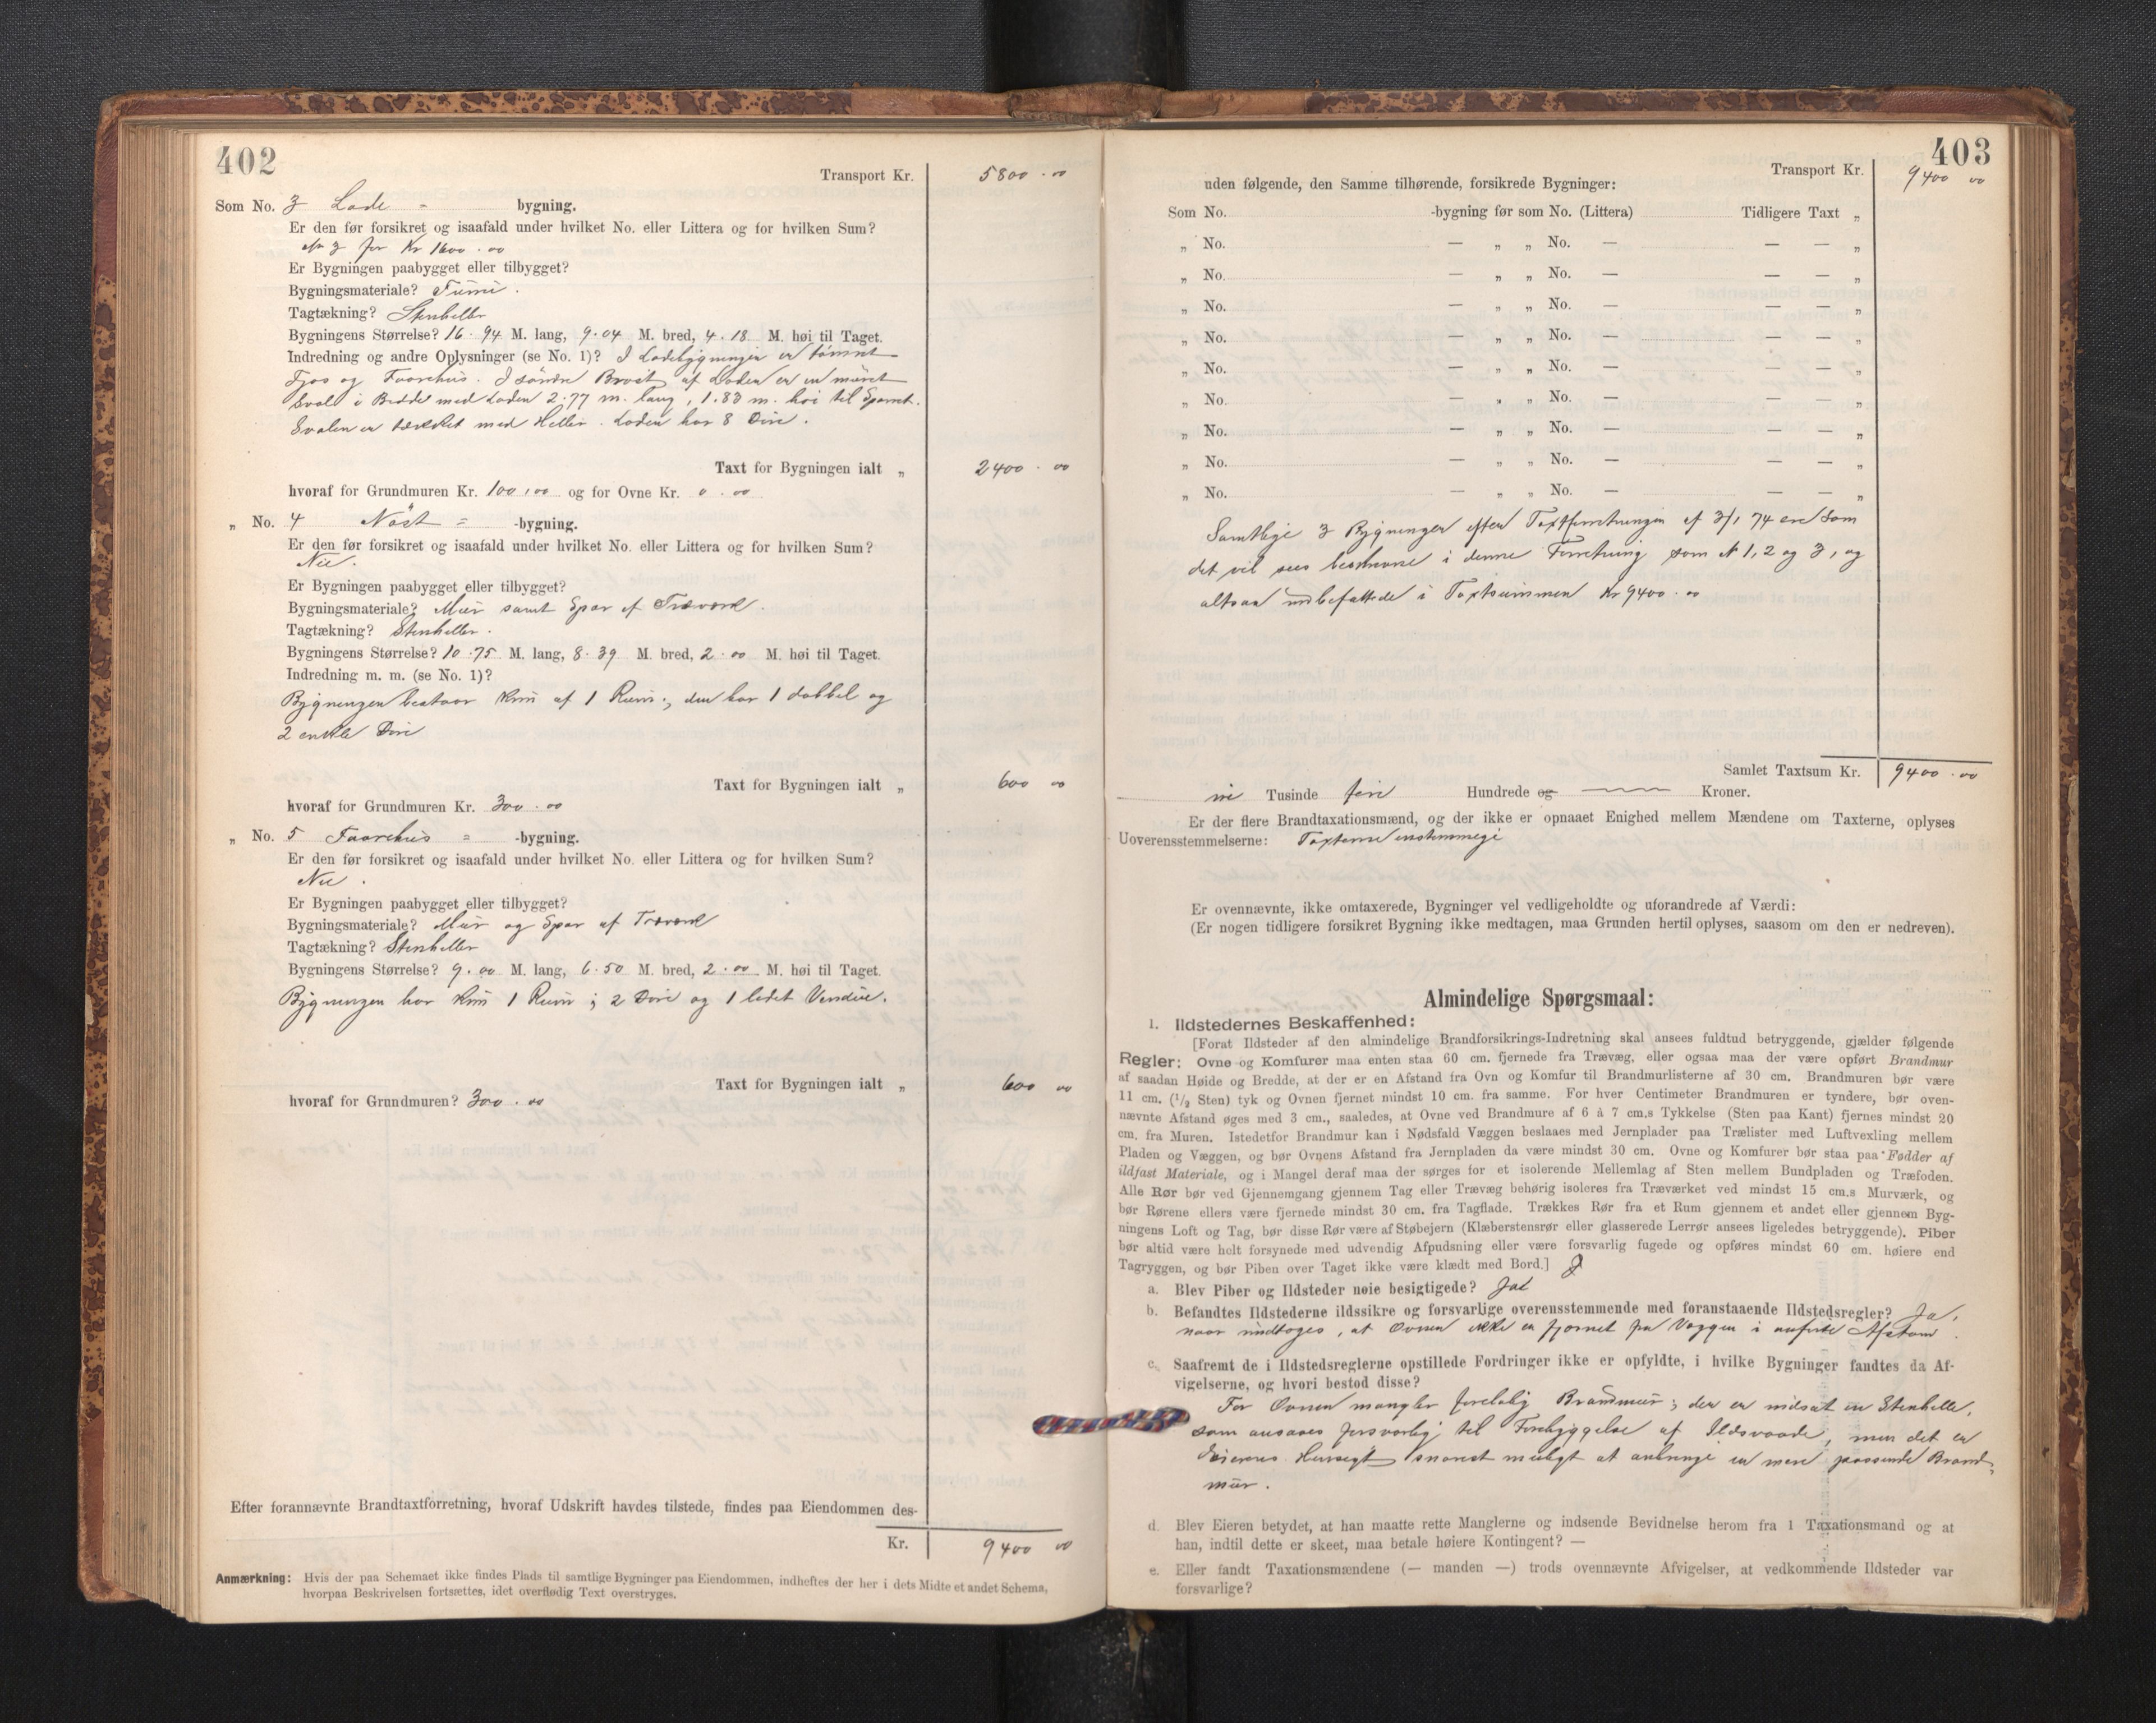 402
Transport Kr. 5800 . 00
Som No. 3 Lade = bygning.
Er den før forsikret og isaafald under hvilket No. eller Littera og for hvilken Sum?
No 3 for Kr 1600 . 00
Er Bygningen paabygget eller tilbygget?
Bygningsmateriale? Tømr .
Tagtækning? Stenheller
Bygningens Størrelse? 16 . 94 M. lang, 9 . 04 M. bred, 4 . 18 M. høi til Taget.
Indredning og andre Oplysninger (se No. 1)? I Ladebygningen er tømret
Fjøs og Faarehus. I søndre Brøst af Laden er en muret
Sval i Bredde med Laden 2.77 m. lang, 1.83 m. høi til Sparret.
Svalen er tækket med Heller. Laden har 8 Døre.
Taxt for Bygningen ialt „ 2400 . 00
hvoraf for Grundmuren Kr. 100,00 og for Ovne Kr. 0 . 00
„ No. 4 Nøst = -bygning.
Er den før forsikret og isaafald under hvilket No. eller Littera og for hvilken Sum?
Nei.
Er Bygningen paabygget eller tilbygget?
Bygningsmateriale? Mur samt Spær af Træværk.
Tagtækning? Stenheller.
Bygningens Størrelse? 10 . 75 M. lang, 8 . 39 M. bred, 2 . 00 M. høi til Taget.
Indredning m. m. (se No. 1)?
Bygningen bestaar kun af 1 Rum; den har 1 dobbel og
2 enkle Døre
Taxt for Bygningen ialt „ 600 00
hvoraf for Grundmuren Kr. 300 . 00
„ No. 5 Faarehus = -bygning.
Er den før forsikret og isaafald under hvilket No. eller Littera og for hvilken Sum?
Nei .
Er Bygningen paabygget eller tilbygget?
Bygningsmateriale? Mur og Spær af Træværk
Tagtækning? Stenheller
Bygningens Størrelse? 9 . 00 M. lang, 6 . 50 M. bred, 2 . 00 M. høi til Taget.
Bygningen har kun 1 Rum; 2 Døre og 1 lidet Vindue.
Taxt for Bygningen ialt „ 600 00
hvoraf for Grundmuren? 300 . 00
Efter forannævnte Brandtaxtforretning, hvoraf Udskrift havdes tilstede, findes paa Eiendommen des-
Kr. 9400 00
Anmærkning: Hvis der paa Schemaet ikke findes Plads til samtlige Bygninger paa Eiendommen, indheftes der her i dets Midte et andet Schema,
hvorpaa Beskrivelsen fortsættes, idet overflødig Text overstryges.
403
Transport Kr. 9400 00
uden følgende, den Samme tilhørende, forsikrede Bygninger:
Som No. -bygning før som No. (Littera) Tidligere Taxt „
„ No. — „ „ No. — — — „
„ No. — „ „ No. — — — „
„ No. — „ „ No. — — — „
„ No. — „ „ No. — — — „
„ No. — „ „ No. — — — „
„ No. — „ „ No. — — — „
„ No. — „ „ No. — — — „
„ No. — „ „ No. — — — „
„ No. — „ „ No. — — — „
Samtlige 3 Bygninger efter Taxtforretningen af 3/1 74 ere som
det vil sees beskrevne i denne Forretning som No 1, 2 og 3, og
altsaa indbefattede i Taxtsummen Kr 9400 . 00
Samlet Taxtsum Kr. 9400 . 00
ni Tusinde fire Hundrede og — Kroner.
Er der flere Brandtaxationsmænd, og der ikke er opnaaet Enighed mellem Mændene om Taxterne, oplyses
Uoverensstemmelserne: Taxterne enstemmige
Er ovennævnte, ikke omtaxerede, Bygninger vel vedligeholdte og uforandrede af Værdi:
(Er nogen tidligere forsikret Bygning ikke medtagen, maa Grunden hertil oplyses, saasom om den er nedreven).
Almindelige Spørgsmaal:
1. Ildstedernes Beskaffenhed:
[Forat Ildsteder af den almindelige Brandforsikrings-Indretning skal ansees fuldtud betryggende, gjælder følgende
Regler: Ovne og Komfurer maa enten staa 60 cm. fjernede fra Trævæg, eller ogsaa maa der være opført Brandmur
af saadan Høide og Bredde, at der er en Afstand fra Ovn og Komfur til Brandmurlisterne af 30 cm. Brandmuren bør være
11 cm. (1/2 Sten) tyk og Ovnen fjernet mindst 10 cm. fra samme. For hver Centimeter Brandmuren er tyndere, bør oven-
nævnte Afstand øges med 3 cm., saaledes, at Ovne ved Brandmure af 6 à 7 cm.s Tykkelse (Sten paa Kant) fjernes mindst 20
cm. fra Muren. Istedetfor Brandmur kan i Nødsfald Væggen beslaaes med Jernplader paa Trælister med Luftvexling mellem
Pladen og Væggen, og bør Ovnens Afstand fra Jernpladen da være mindst 30 cm. Ovne og Komfurer bør staa paa Fødder af
ildfast Materiale, og i Mangel deraf maa der sørges for et isolerende Mellemlag af Sten mellem Bundpladen og Træfoden.
Alle Rør bør ved Gjennemgang gjennem Tag eller Trævæg behørig isoleres fra Træværket ved mindst 15 cm.s Murværk, og
bør Rørene ellers være fjernede mindst 30 cm. fra Tagflade. Trækkes Rør fra et Rum gjennem et andet eller gjennem Byg-
ningens Loft og Tag, bør disse Rør være af Støbejern (Klæberstensrør eller glasserede Lerrør ansees ligeledes betryggende). Piber
bør altid være helt forsynede med udvendig Afpudsning eller være forsvarlig fugede og opføres mindst 60 cm. høiere end
Tagryggen, og bør Piben over Taget ikke være klædt med Bord.]
a. Blev Piber og Ildsteder nøie besigtigede? Ja
b. Befandtes Ildstederne ildssikre og forsvarlige overensstemmende med foranstaaende Ildstedsregler? Ja,
naar undtages, at Ovnen ikke er fjernet fra Væggen i anførte Afstand.
c. Saafremt de i Ildstedsreglerne opstillede Fordringer ikke er opfyldte, i hvilke Bygninger fandtes da Af-
vigelserne, og hvori bestod disse?
For Ovnen mangler foreløbig Brandmur; der er indsat en Stenhelle,
som ansaaes forsvarlig til Forebyggelse af Ildsvaade, men det er
Eierens Hensigt snarest muligt at anbringe en mere passende Brand-
mur.
d. Blev Eieren betydet, at han maatte rette Manglerne og indsende Bevidnelse herom fra 1 Taxationsmand og at
han, indtil dette er skeet, maa betale høiere Kontingent? —
e. Eller fandt Taxationsmændene (— manden —) trods ovennævnte Afvigelser, at vedkommende Ildsteder var
forsvarlige?